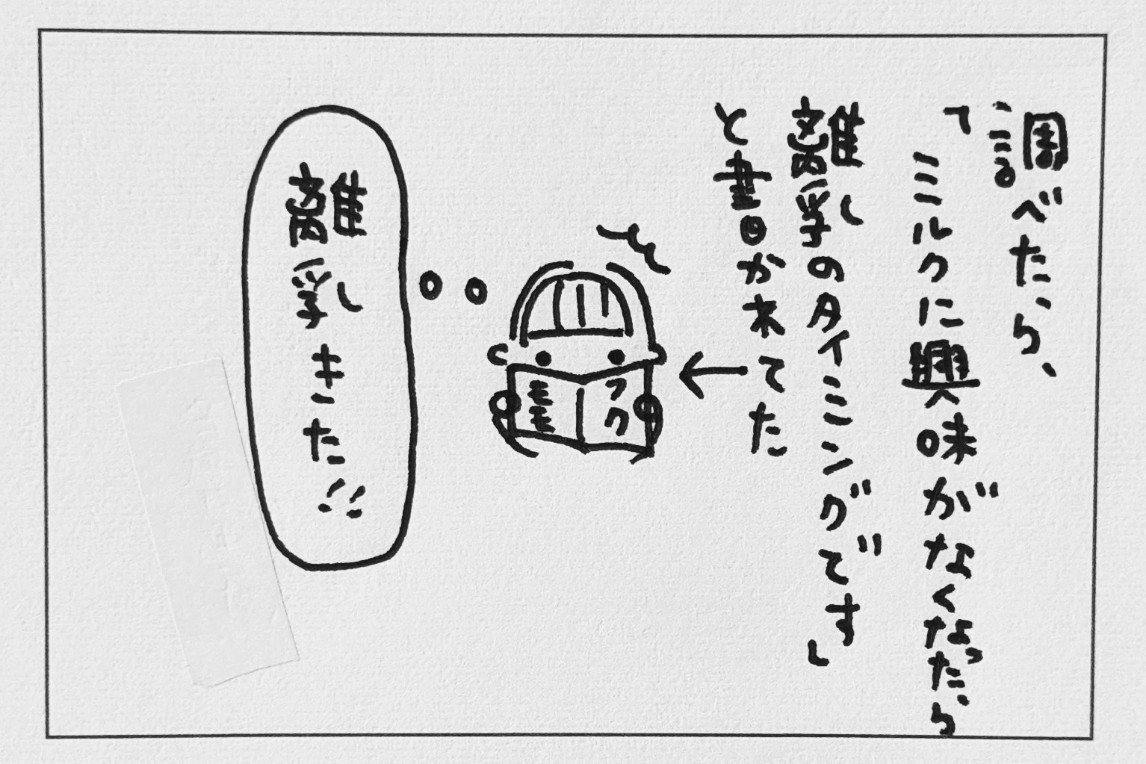 調べたら、
「ミルクに興味がなくなったら
離乳のタイミングです」
と書かれてた
フク
モモ
離乳きた!!